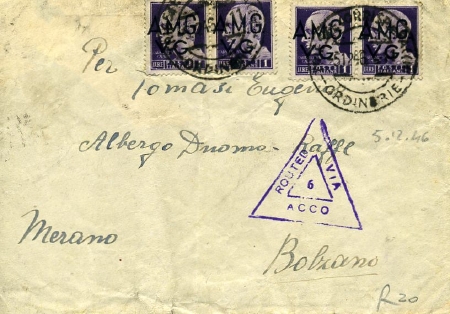 A.M.G. A.M.G. A.M.G. A.M.G.
V.G. V.G. V.G. V.G.
LIRE 1 LIRE 1 LIRE 1 LIRE 1
ORDINARIE ORDINARIE
Per
Tomasi Eugen
5.2.46
Albergo Duomo - Raffe
ROUTED VIA
6
ACCO
Merano
Bolzano
R 20